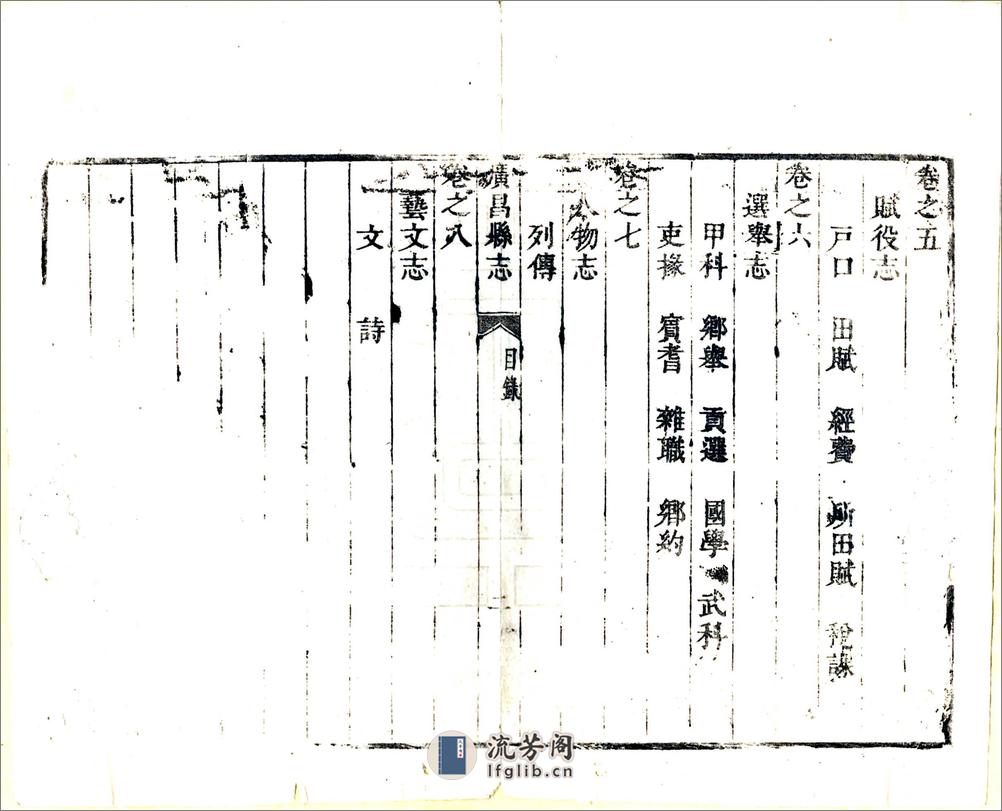 卷之五
賦役志
戸口 田賦 經費 所田賦 稅課
卷之六
選舉志
甲科 鄉舉 貢選 國學 武科
吏掾 賓耆 雜職 鄉約
卷之七
人物志
列傳
廣昌縣志 目錄 二
卷之八
藝文志
文 詩
流芳阁
lfglib.cn